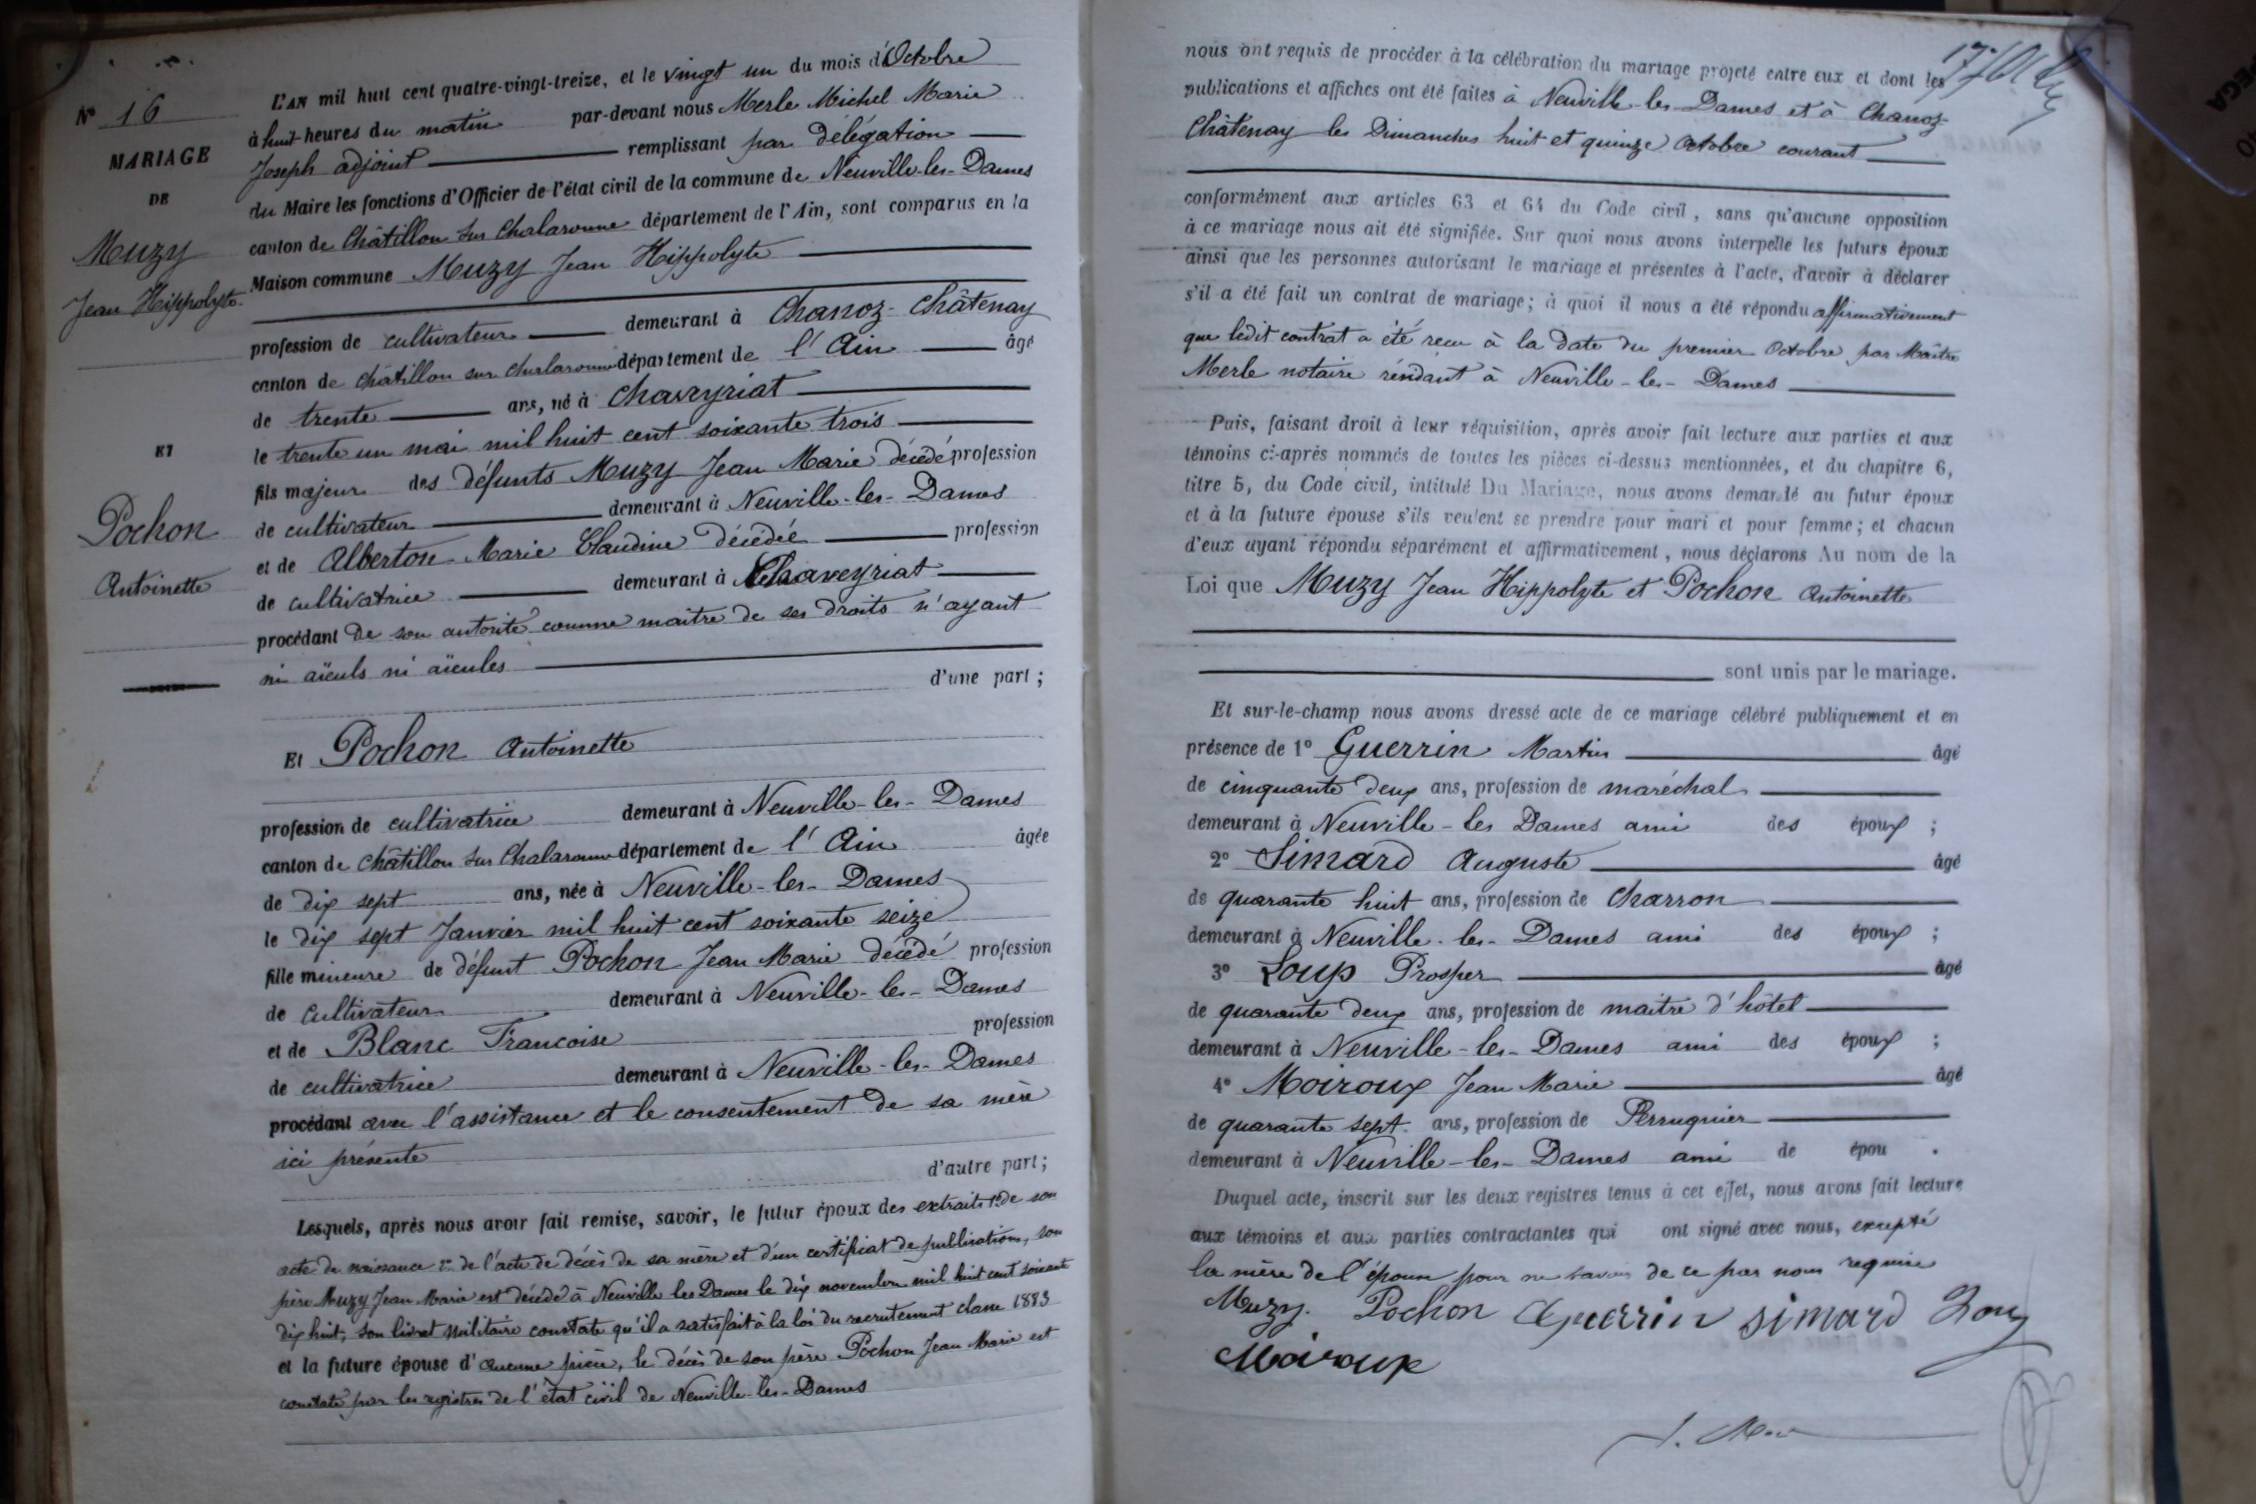 Nº 16
MARIAGE
DE
Muzy
Jean Hippolyte
ET
Pochon
Antoinette
L'AN mil huit cent quatre-vingt-treize, et le vingt un du mois d'Octobre
à huit heures du matin par-devant nous Merle Michel Marie
Joseph adjoint remplissant par délégation
du Maire les fonctions d'Officier de l'état civil de la commune de Neuville-les-Dames
canton de Châtillon sur Chalaronne département de l'Ain, sont comparus en la
Maison commune Muzy Jean Hippolyte
profession de cultivateur demeurant à Chanoz-Châtenay
canton de Châtillon sur Chalaronne département de l'Ain âgé
de trente ans, né à Chaveyriat
le trente un mai mil huit cent soixante trois
fils majeur des défunts Muzy Jean Marie décédé profession
de cultivateur demeurant à Neuville-les-Dames
et de Alberton Marie Claudine décédée profession
de cultivatrice demeurant à Chaveyriat
procédant de son autorité comme maître de ses droits n'ayant
ni aïeuls ni aïeules
d'une part ;
Et Pochon Antoinette
profession de cultivatrice demeurant à Neuville-les-Dames
canton de Châtillon sur Chalaronne département de l'Ain âgée
de dix sept ans, née à Neuville-les-Dames
le dix sept Janvier mil huit cent soixante seize
fille mineure de défunt Pochon Jean Marie décédé profession
de cultivateur demeurant à Neuville-les-Dames
et de Blanc Francoise profession
de cultivatrice demeurant à Neuville-les-Dames
procédant avec l'assistance et le consentement de sa mère
ici présente
d'autre part ;
Lesquels, après nous avoir fait remise, savoir, le futur époux des extraits 1º de son
acte de naissance 2º de l'acte de décès de sa mère et d'un certificat de publications, son
père Muzy Jean Marie est décédé à Neuville les Dames le dix novembre mil huit cent soixante
dix huit, son livret militaire constate qu'il a satisfait à la loi du recrutement classe 1883
et la future épouse d'aucune pièce, le décès de son père Pochon Jean Marie est
constaté par les registres de l'état civil de Neuville-les-Dames
nous ont requis de procéder à la célébration du mariage projeté entre eux et dont les
publications et affiches ont été faites à Neuville-les-Dames et à Chanoz-
Châtenay les Dimanches huit et quinze Octobre courant
conformément aux articles 63 et 64 du Code civil, sans qu'aucune opposition
à ce mariage nous ait été signifiée. Sur quoi nous avons interpellé les futurs époux
ainsi que les personnes autorisant le mariage et présentes à l'acte, d'avoir à déclarer
s'il a été fait un contrat de mariage ; à quoi il nous a été répondu affirmativement
que ledit contrat a été recu à la date du premier Octobre par Maître
Merle notaire résidant à Neuville-les-Dames
Puis, faisant droit à leur réquisition, après avoir fait lecture aux parties et aux
témoins ci-après nommés de toutes les pièces ci-dessus mentionnées, et du chapitre 6,
titre 5, du Code civil, intitulé Du Mariage, nous avons demandé au futur époux
et à la future épouse s'ils veulent se prendre pour mari et pour femme ; et chacun
d'eux ayant répondu séparément et affirmativement, nous déclarons Au nom de la
Loi que Muzy Jean Hippolyte et Pochon Antoinette
sont unis par le mariage.
Et sur-le-champ nous avons dressé acte de ce mariage célébré publiquement et en
présence de 1º Guerrin Martin âgé
de cinquante deux ans, profession de maréchal
demeurant à Neuville-les Dames ami des époux ;
2º Simard Auguste âgé
de quarante huit ans, profession de Charron
demeurant à Neuville-les-Dames ami des époux ;
3º Loup Prosper âgé
de quarante deux ans, profession de maître d'hôtel
demeurant à Neuville-les-Dames ami des époux ;
4º Moiroux Jean Marie âgé
de quarante sept ans, profession de Perruquier
demeurant à Neuville-les-Dames ami de épou .
Duquel acte, inscrit sur les deux registres tenus à cet effet, nous avons fait lecture
aux témoins et aux parties contractantes qui ont signé avec nous, excepté
la mère de l'épouse pour ne savoir de ce par nous requise
Muzy. Pochon Guerrin Simard Loup
Moiroux